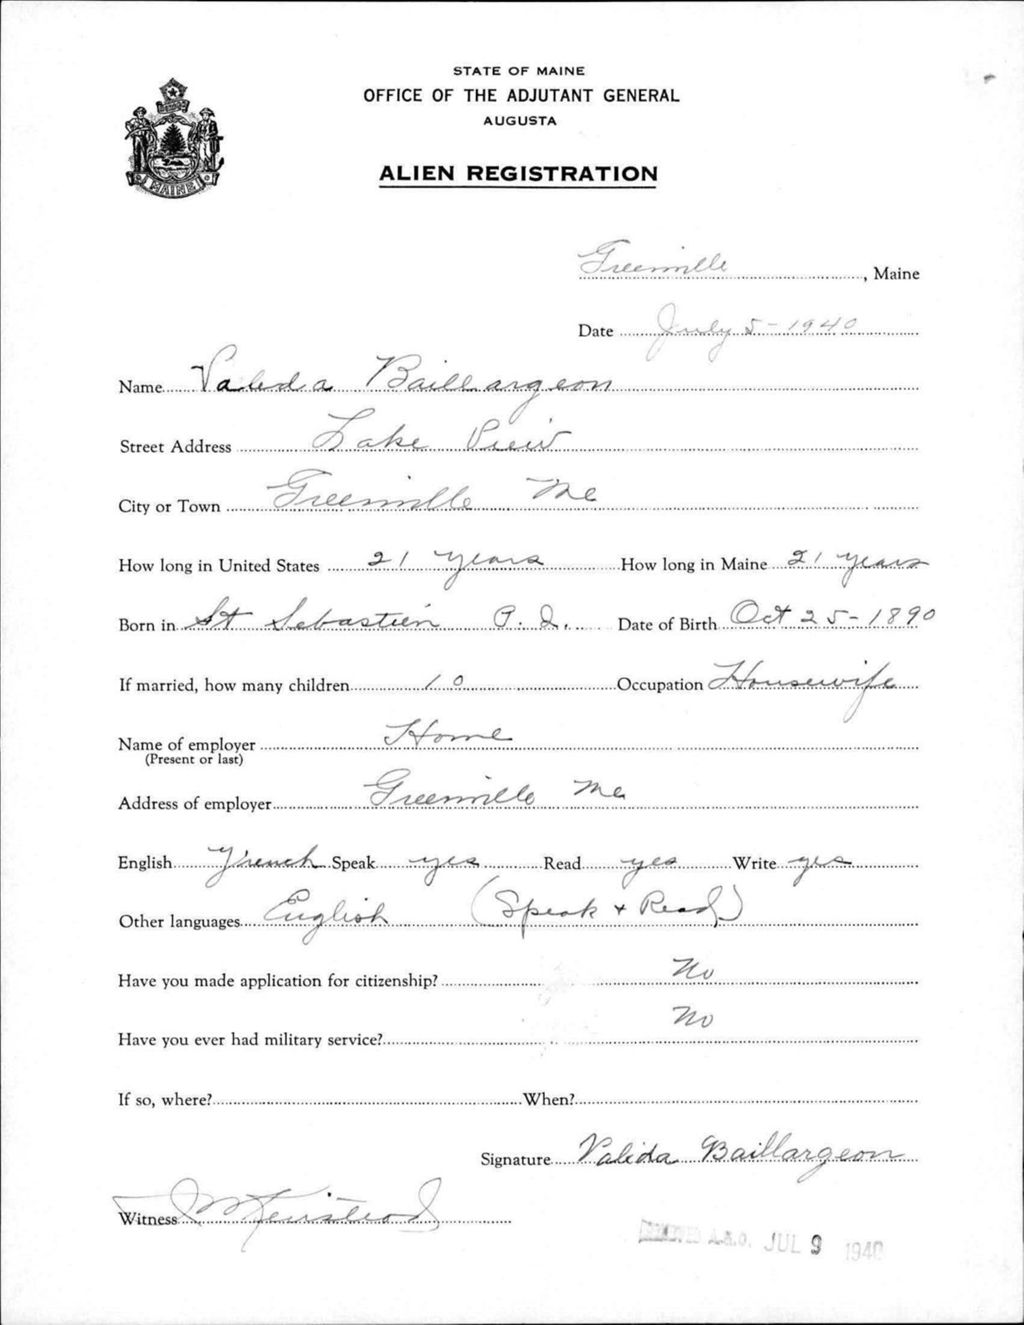 STATE OF MAINE
OFFICE OF THE ADJUTANT GENERAL
AUGUSTA
ALIEN REGISTRATION
MAINE
Greenville, Maine
Date July 5 - 1940
Name Valeda Baillargeon
Street Address Lake View
City or Town Greenville Me
How long in United States 21 years How long in Maine 21 years
Born in St Sebastien P. Q. Date of Birth Oct 25 - 1890
If married, how many children 10 Occupation Housewife
Name of employer Home
(Present or last)
Address of employer Greenville Me
English French Speak yes Read yes Write yes
Other languages English (Speak + Read)
Have you made application for citizenship? No
Have you ever had military service? No
If so, where? When?
Signature Valida Baillargeon
Witness
RECEIVED A.G.O. JUL 9 1940